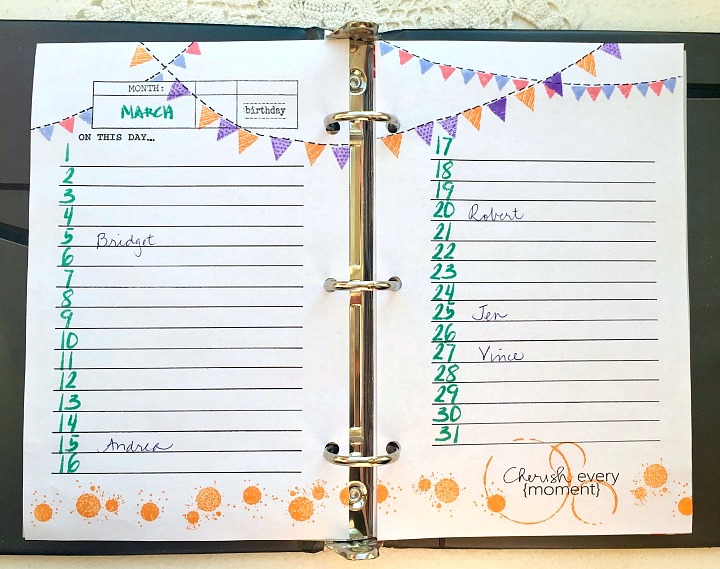 MONTH:
MARCH birthday
ON THIS DAY...
1
2
3
4
5 Bridget
6
7
8
9
10
11
12
13
14
15 Andrea
16
17
18
19
20 Robert
21
22
23
24
25 Jen
26
27 Vince
28
29
30
31
Cherish every
{moment}